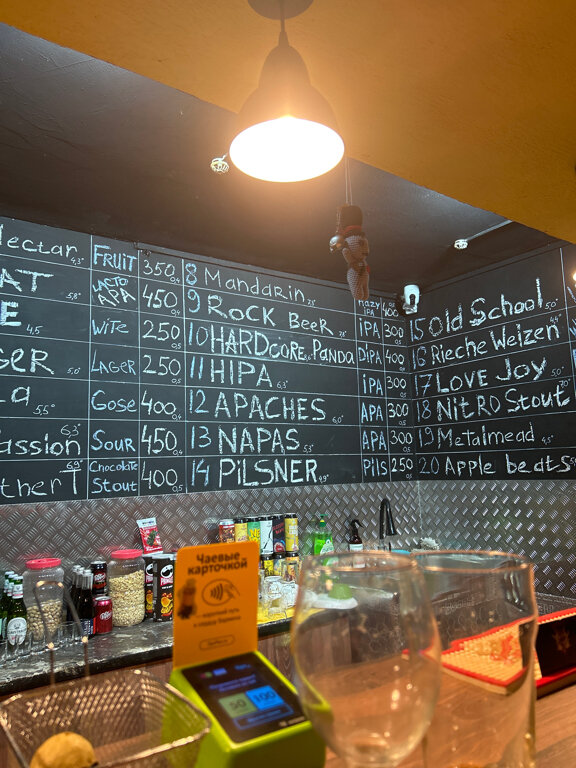 Nectar 4,3° FRUIT 350 0,4
AT 5,8° LACTO APA 450 0,4
E 4,5 WITE 250 0,5
GER 5,0° LAGER 250 0,5
a 5,5° GOSE 400 0,4
assion 6,3° SOUR 450 0,5
ther T 6,9° Chocolate Stout 400 0,5
8 Mandarin HAZY IPA 400
9 ROCK BEER IPA 300
10 HARDcore Panda DIPA 400
11 HIPA 6,3° IPA 300
12 APACHES 6,0° APA 300
13 NAPAS 5,3° APA 300
14 PILSNER 4,9° Pils 250
15 Old School 5,0°
16 Rieche Weizen
17 LOVE JOY 5,0°
18 NITRO Stout
19 Metalmead
20 Apple beats
Чаевые
карточкой
50 100